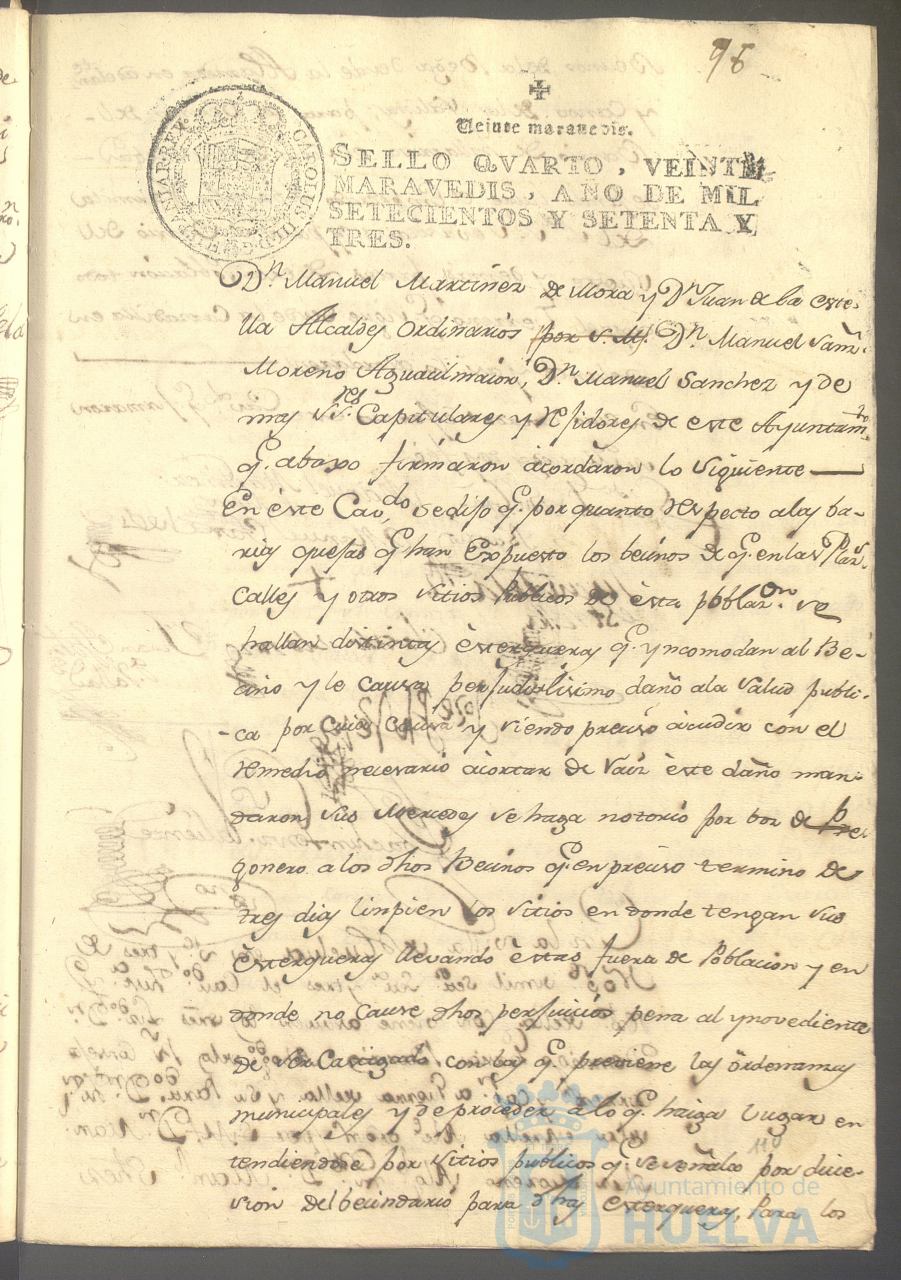 98
Veinte maravedis.
CAROLUS III D G HISPANIAR REX
SELLO QVARTO, VEINTE
MARAVEDIS, AÑO DE MIL
SETECIENTOS Y SETENTA Y
TRES.
Dn. Manuel Martinez de Mora y Dn Juan de la este-
lla Alcaldes ordinarios por S. M. Dn. Manuel Sanz.
Moreno Aguacilmaior, Dn. Manuel Sanchez y de
mas Sres. Capitulares y Rejidores de este Ayuntamto.
q. abaxo firmaron acordaron lo siguiente
En este Cavdo, se dijo q. por quanto respecto alas ba-
rias quejas q han Expuesto los becinos de q. en las Plazs.
calles y otros sitios Publicos de esta poblazon. se
hallan distintas esterqueras q. yncomodan al Be-
cino y le causa perjudisilisimo daño ala salud publi-
ca por cuia causa y siendo preciso acudir con el
remedio necesario acortar de raiz este daño man-
daron sus Mercedes se haga notorio por boz de Pre
gonero a los dhos Becinos q. en preciso termino de
tres dias linpien los sitios en donde tengan sus
Esterqueras llevando estas fuera de Poblacion y en
donde no cause dhos perjuicios pena al ynovediente
de ser Castigado con las q. previene las ordenansas
municipales y de proceder a lo q. haiga lugar en
tendiendose por sitios publicos q. se señala por dice-
sion del becindario para dhas esterqueras, para los
110
Ayuntamiento de
HUELVA